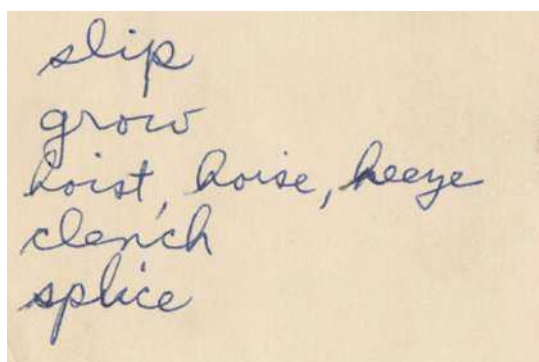 slip
grow
hoist, hoise, heeze
clench
splice